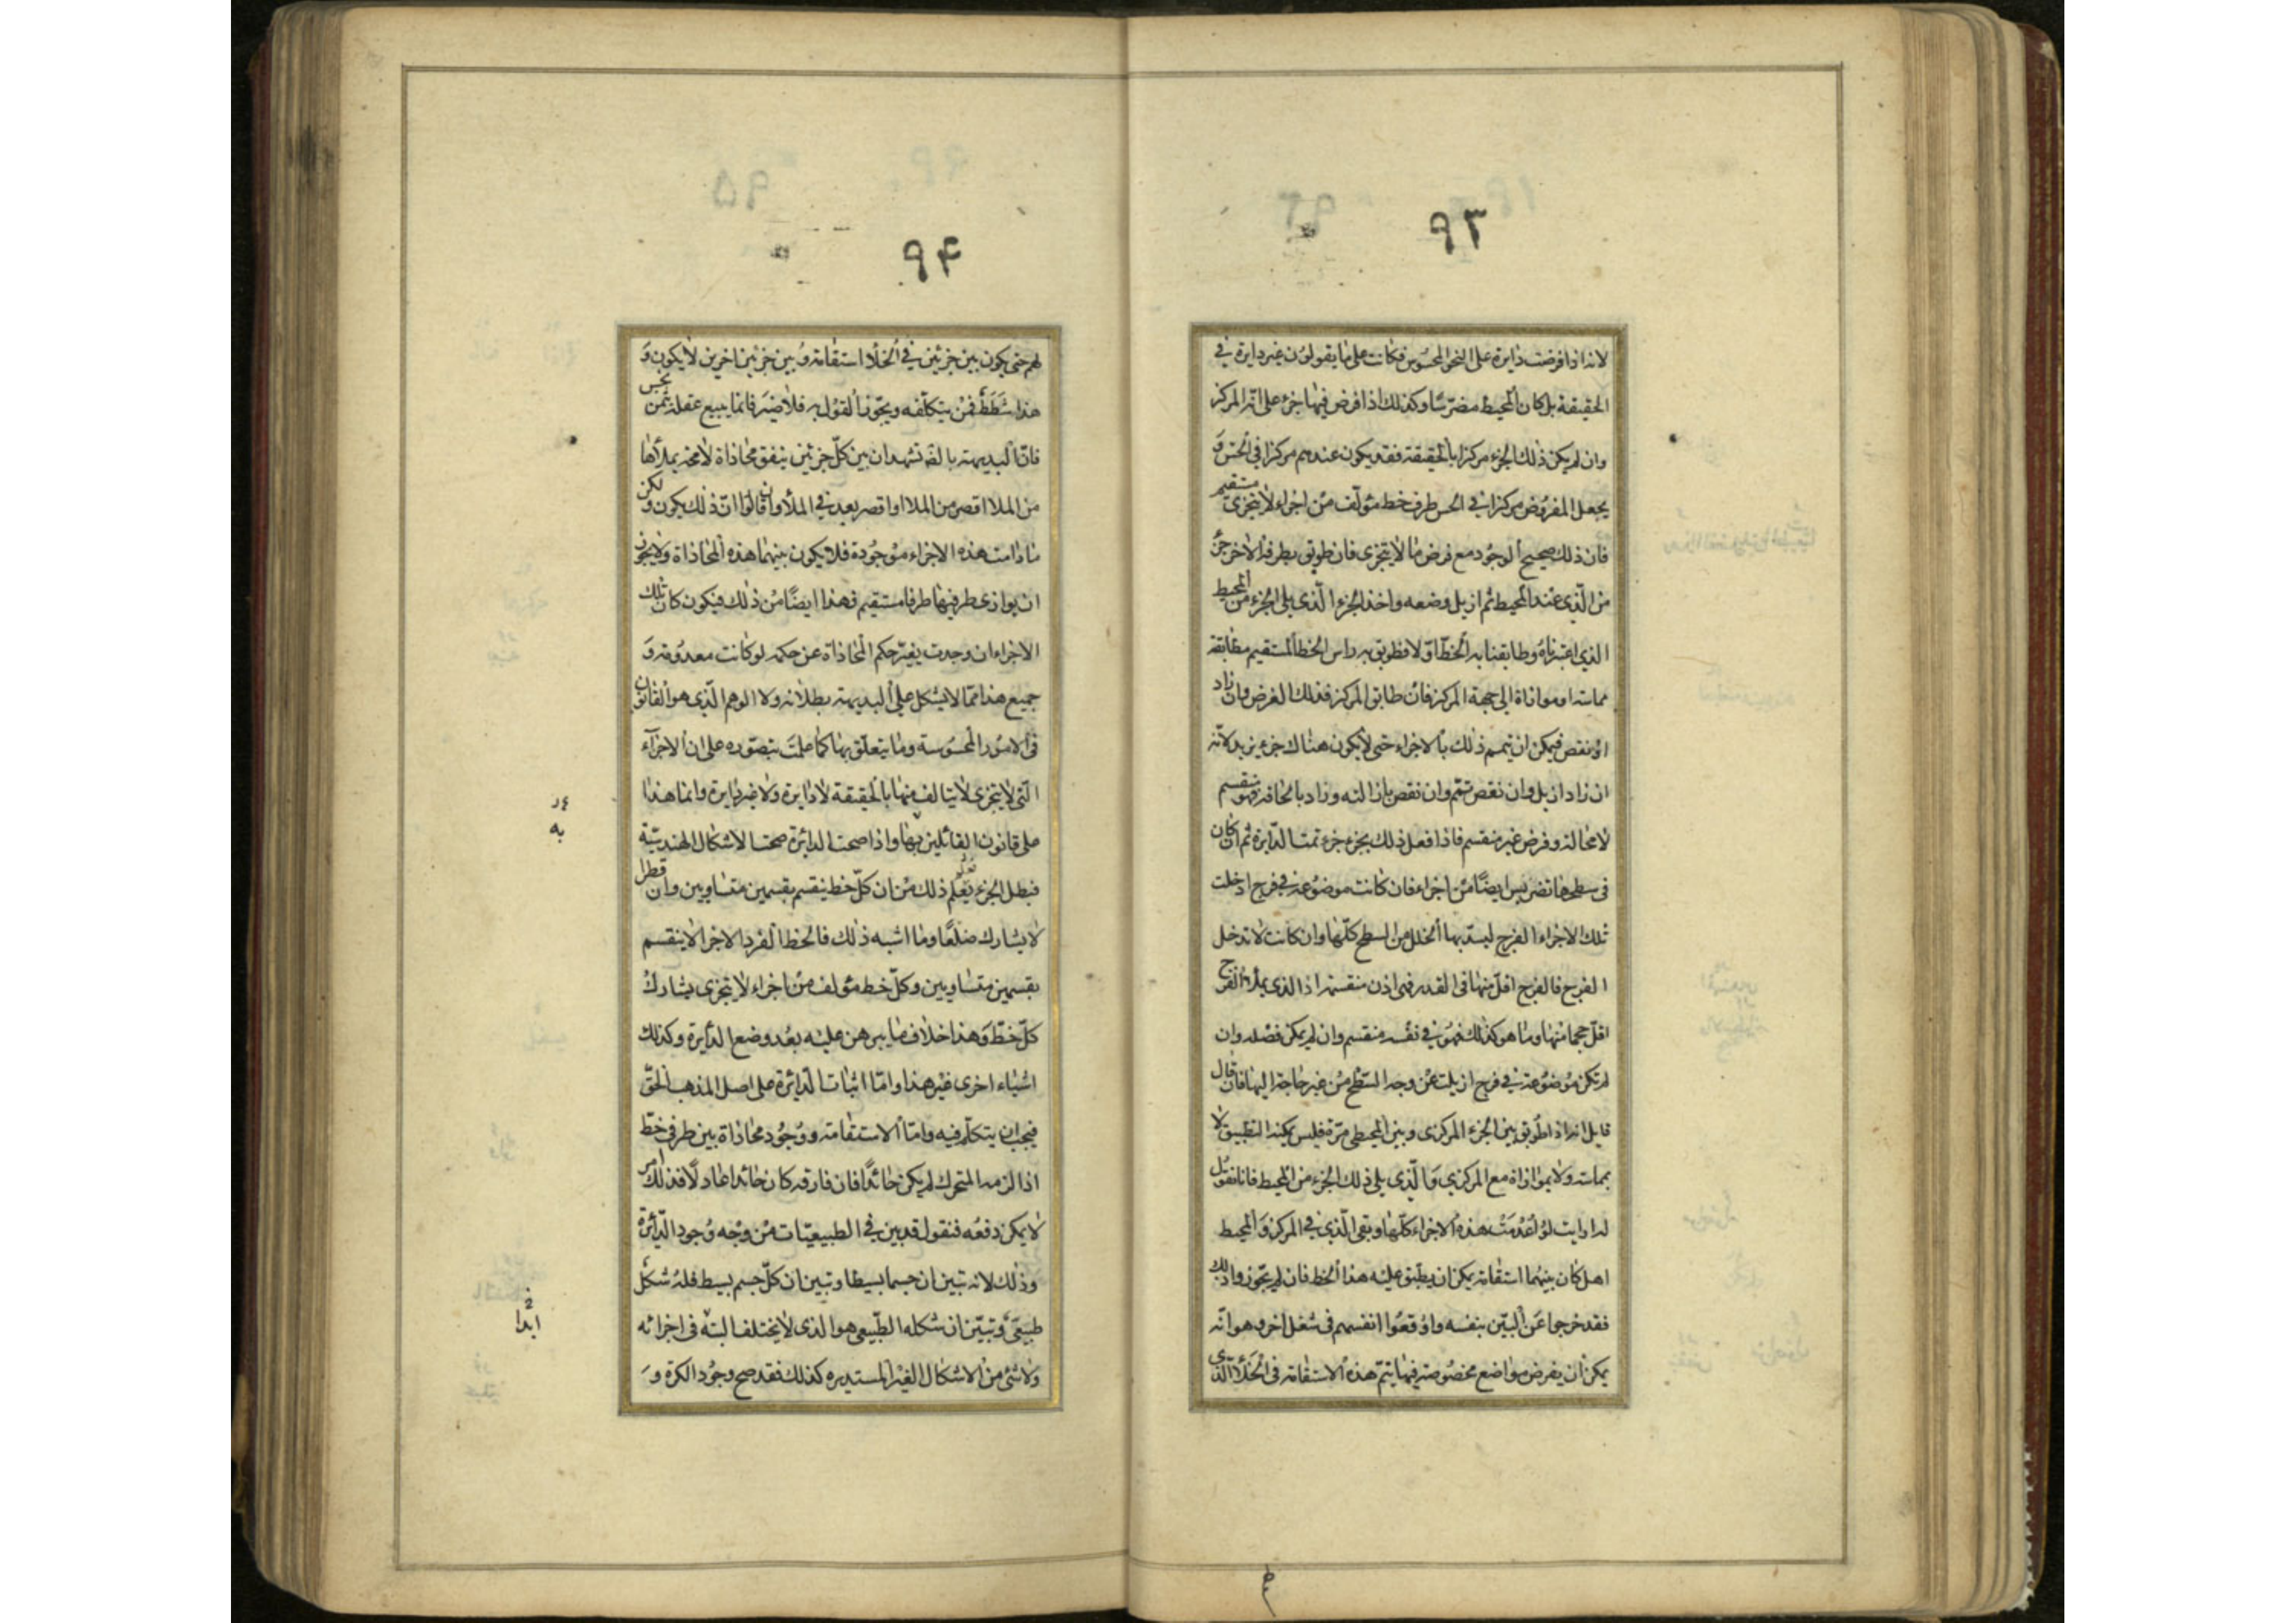 ٩٣
لانه اذا فرضت دايرة على النحو المحسوس فكانت على ما يقولون غير دايرة في
الحقيقة بل كان المحيط مضرسا وكذلك اذا فرض فيها جزء على انه المركز
وان لم يكن ذلك الجزء مركزا بالحقيقة فقد يكون عندهم مركزا في الحس و
يجعل المفروض مركزا في الحس طرف خط مؤلف من اجزاء لا يتجزى مستقيم
فان ذلك صحيح الوجود مع فرض ما لا يتجزى فان طوبق بطرفه الاخر جزء
من الذى عند المحيط ثم ازيل وضعه واخذ الجزء الذى يلى الجزء من المحيط
الذي اعتبرناه وطابقنا به الخط اولا فطوبق به راس الخط المستقيم مطابقة
مماسة او موازاة الى جهة المركز فان طابق المركز فذلك الغرض وان زاد
او نقص فيمكن ان يتمم ذلك بالاجزاء حتى لا يكون هناك جزء يزيد لانه
ان زاد ازيل وان نقص تمم وان نقص بازالته وزاد بالحاقه فهو منقسم
لا محالة وفرض غير منقسم فاذا فعل ذلك بجزء جزء تمت الدايرة ثم ان كان
فى سطحها تضريس ايضا من اجزاء فان كانت موضوعة في فرج ادخلت
تلك الاجزاء الفرج ليسد بها الخلل من السطح كلها وان كانت لا تدخل
الفرج فالفرج اقل منها فى القدر فهى اذن منقسمة اذ الذى يملاء الفرج
اقل حجما منها وما هو كذلك فهو في نفسه منقسم وان لم يكن فصله وان
لم تكن موضوعة في فرج ازيلت عن وجه السطح من غير حاجة اليها فان قال
قايل انه اذا طوبق بين الجزء المركزى وبين المحيطى مرة فليس يمكنه التطبيق لا
بمماسة ولا بموازاة مع المركزي والذي يلي ذلك الجزء من المحيط فانا نقول
له ارايت لو اعدمت هذه الاجزاء كلها وبقى الذي في المركز والمحيط
اهل كان بينهما استقامة يمكن ان يطبق عليه هذا الخط فان لم يجوزوا ذلك
فقد خرجوا عن البين بنفسه واوقعوا انفسهم فى شغل اخر وهو انه
يمكن ان يفرض مواضع مخصوصة فيها يتم هذه الاستقامة فى الخلاء الذى
٩۴
لهم حتى يكون بين جزئين في الخلا استقامة وبين جزئين اخرين لا يكون و
هذا شطط فمن يتكلفه ويجوز القول به فلا ضير فانما يبيع عقله بثمن بخس
فان البديهة بالفه تشهد ان بين كل جزئين يتفق محاذاة لا محة يملأها
من الملا اقصر من الملا او اقصر بعد في الملأ وان قالوا ان ذلك يكون ولكن
ما دامت هذه الاجزاء موجودة فلا يكون بينهما هذه المحاذاة ولا يجوز
ان يوازى طرفيها طرفا مستقيم فهذا ايضا من ذلك فيكون كان تلك
الاجزاء ان وجدت يغير حكم المحاذاة عن حكمه لو كانت معدومة و
جميع هذا مما لا يشكل على البديهة بطلانه ولا الوهم الذى هو القانون
فى الامور المحسوسة وما يتعلق بها كما علمت يتصوره على ان الاجزاء
التى لا يتجزى لا يتالف منها بالحقيقة لا دايرة ولا غير دايرة وانما هذا
على قانون القائلين بها واذا صحت الدائرة صحت الاشكال الهندسية
فبطل الجزء يعلم ذلك من ان كل خط ينقسم بقسمين متساويين وان قطرا
لا يشارك ضلعا وما اشبه ذلك فالخط الفرد الاجزا لا ينقسم
بقسمين متساويين وكل خط مؤلف من اجزاء لا يتجزى يشارك
كل خط وهذا خلاف ما يبرهن عليه بعد وضع الدايرة وكذلك
اشياء اخرى غير هذا واما اثبات الدايرة على اصل المذهب الحق
فيجب ان يتكلم فيه واما الاستقامة ووجود محاذاة بين طرفي خط
اذا لزمه المتحرك لم يكن حائدا فان فارقه كان حائدا عادلا فذلك امر
لا يمكن دفعه فنقول قد بين في الطبيعيات من وجه وجود الدائرة
وذلك لانه تبين ان جسما بسيطا وتبين ان كل جسم بسيط فله شكل
طبيعى وتبين ان شكله الطبيعى هو الذى لا يختلف البتة فى اجزائه
ولا شئ من الاشكال الغير المستديره كذلك فقد صح وجود الكرة و
به
ابدا